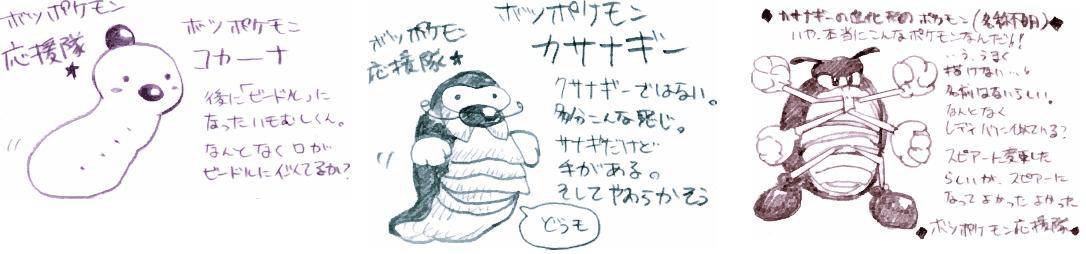 ボツポケモン
応援隊★
ボツポケモン
コカーナ
後に「ビードル」に
なったいもむしくん。
なんとなく口が
ビードルに似てるか?
ボツポケモン
応援隊★
ボツポケモン
カサナギー
クサナギーではない。
多分こんな感じ。
サナギだけど
手がある。
そしてやわらかそう
どうも
◆カサナギーの進化形のポケモン(名称不明)◆
いや、本当にこんなポケモンなんだよ!
…う、うまく
描けない…。
名前はないらしい。
なんとなく
レディバに似ている?
スピアーに変更した
らしいが、スピアーに
なってよかったよかった
◆ボツポケモン応援隊◆